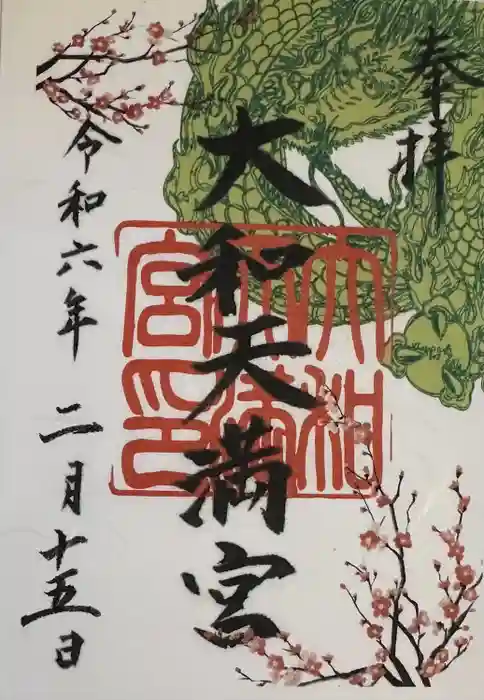 奉拝
大和天満宮
令和六年 二月十五日
大和天満宮印